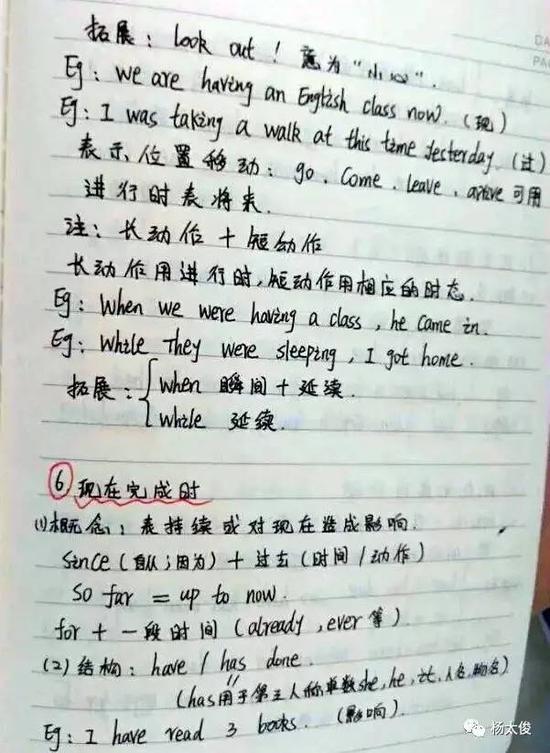 拓展：Look out！意为"小心".
Eg：we are having an English class now.（现）
Eg：I was taking a walk at this time yesterday.（过）
表示位置移动：go、Come、leave、arrive 可用
进行时表将来.
注：长动作 + 短动作
长动作用进行时,短动作用相应的时态.
Eg：When we were having a class, he came in.
Eg：While they were sleeping, I got home.
拓展：{ When 瞬间 + 延续.
While 延续.
⑥ 现在完成时
(1)概念：表持续或对现在造成影响.
Since（自从；因为）+ 过去（时间/动作）
So far = up to now.
for + 一段时间（already, ever 等）
(2)结构：have / has done.
（has用于第三人称单数she, he, it, 人名, 物名）
Eg：I have read 3 books.（影响）.
杨太俊
DA
PA